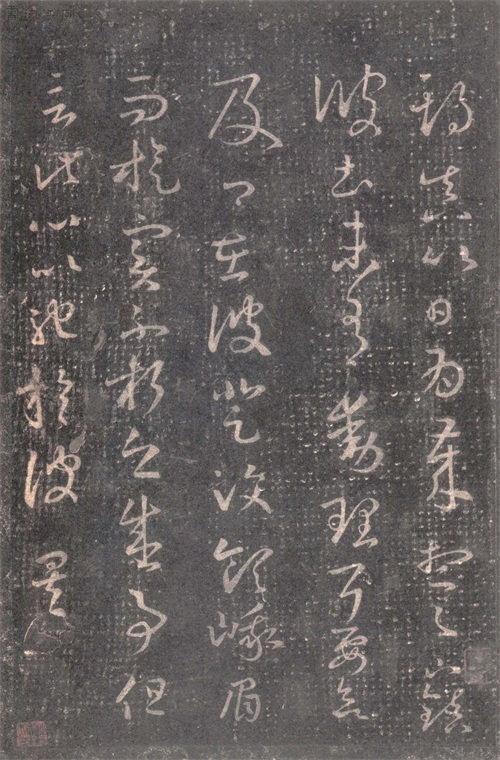 期真以日為歲想足下鎮
彼土未有動理耳要欲
及卿在彼登汶領峨眉
而旋實不朽之盛事但
言此心以馳於彼矣